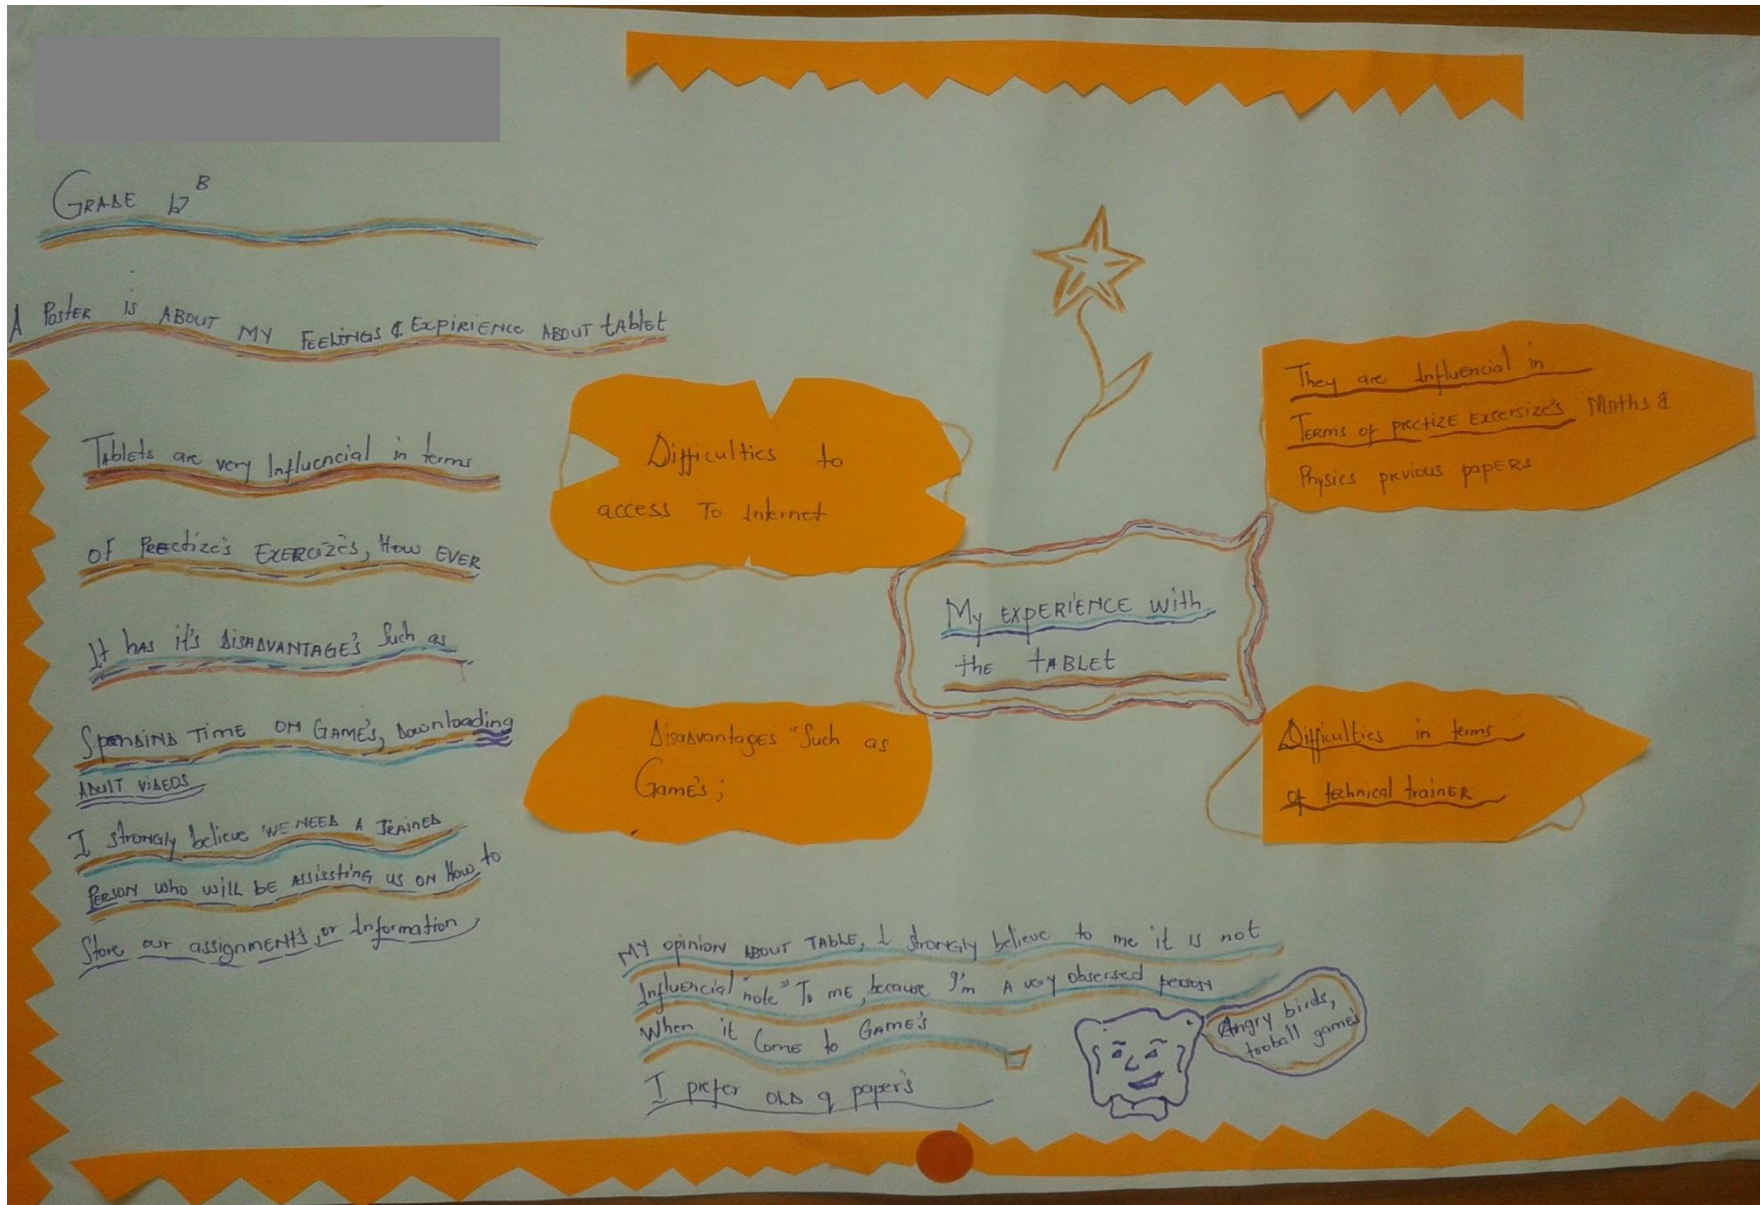 GRADE 12 B
A Poster is ABOUT MY FEELINGS & EXPIRIENCE ABOUT tABLEt
Tablets are very Influencial in terms
OF PREctize's EXERCIZE'S, How EVER
It has it's DISADVANTAGE'S Such as
SPENDING TIME ON GAME'S, Downloading
ADULT VIDEOS
I strongly believe WE NEED A TRAINED
PERSON who will BE ASSISSTING US ON How to
Store our assignment's, or Information,
Difficulties to
access To Internet
Disadvantages "Such as
Game's;
My EXPERIENCE with
the tABLEt
They are Influencial in
TERMS of prectIZE EXCERSIZE'S MATHS &
Physics previous papERS
Difficulties in terms
of technical trainER
MY opinion ABOUT TABLE, I strongly believe to me it is not
Influencial "note" To me, because I'm A very observed person
When it Come to GAME'S
I prefer OLD q paper's
Angry birds,
tooball game's